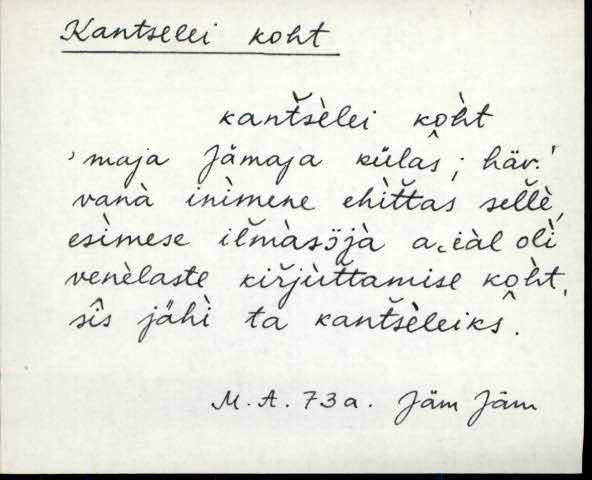 Kantselei koht
kant̆sèlei ko̭h̀t
'maja Jämaja külas; häv.'
vanà inìmene ehit̆tas sel̆lè,
esìmese il̆màsöjà a˛ėàl olì
venèlaste kir̆jùt̆tamise ko̭h̀t,
sîs jähì ta kant̆sèleiks.
M. A. 73a. Jäm Jäm